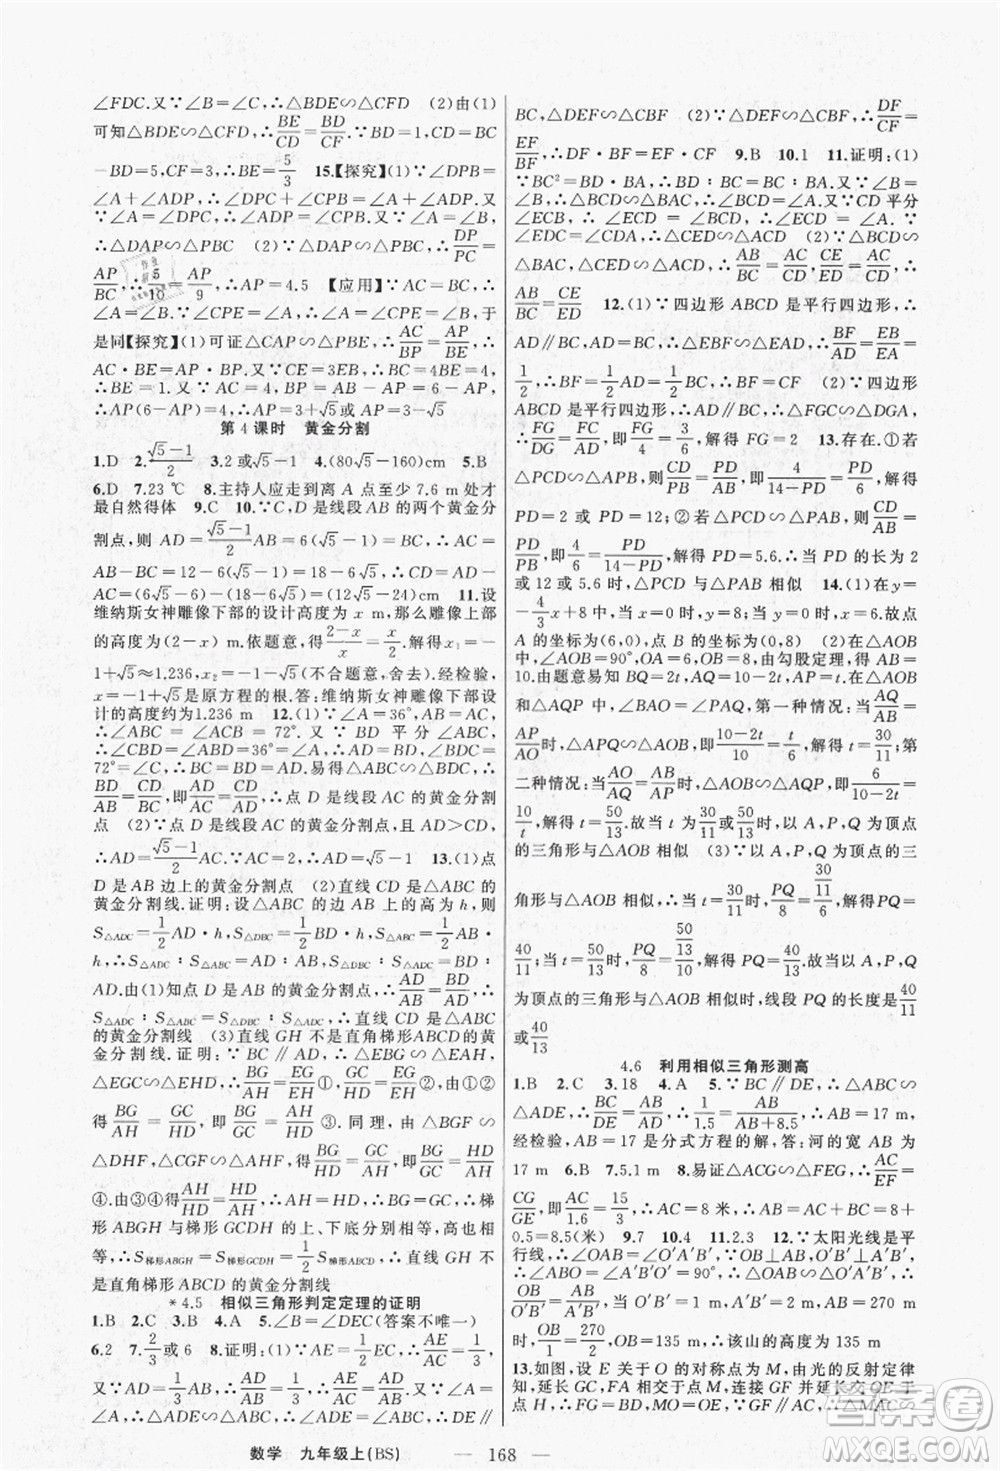 ∠FDC.又∵∠B=∠C,∴△BDE∽△CFD　(2)由(1)
可知△BDE∽△CFD,∴BE/CD=BD/CF.∵BD=6,CD=BC
-BD=5,CF=3,∴BE=5/3　15.【探究】(1)∵∠DPB=
∠A+∠ADP,∴∠DPC+∠CPB=∠A+∠ADP.又
∵∠A=∠DPC,∴∠ADP=∠CPB.又∵∠A=∠B,
∴△DAP∽△PBC　(2)∵△DAP∽△PBC,∴DP/PC=
AP/BC,∴5/10=AP/9,∴AP=4.5　【应用】∵AC=BC,∴
∠A=∠B.∵∠CPE=∠A,∴∠A=∠CPE=∠B,于
是同【探究】(1)可证△CAP∽△PBE,∴AC/BP=AP/BE,∴
AC·BE=AP·BP.又∵AC=BC,CE=3EB,∴AC=
4BE,∴4BE²=AP·BP.∵BP=AB-AP=6-AP,
∴AP(6-AP)=4,∴AP=3+√5或AP=3-√5
第4课时　黄金分割
1.D　2.(√5-1)/2　3.2或√5-1　4.(80√5-160)cm　5.B
6.D　7.23 ℃　8.主持人应走到离A点至少7.6 m处才
最自然得体　9.C　10.∵C,D是线段AB的两个黄金分
割点,∴AD=BC=(√5-1)/2 AB=6(√5-1)cm,∴AC=
AB-BC=12-6(√5-1)=(18-6√5)cm,∴CD=AD-
AC=(6√5-6)-(18-6√5)=(12√5-24)cm　11.设
维纳斯女神雕像下部的设计高度为x m,那么雕像上部
的高度为(2-x) m.依题意,得(2-x)/x=x/2.解得x₁=-
1+√5≈1.236,x₂=-1-√5(不合题意,舍去).经检验,
x=-1+√5是原方程的根.答:维纳斯女神雕像下部设
计的高度约为1.236 m　12.(1)∵∠A=36°,AB=AC,
∴∠ABC=∠ACB=72°.又∵BD平分∠ABC,
∴∠CBD=∠ABD=36°=∠A,∴AD=BD,∠BDC=
72°=∠C,∴BC=BD=AD.易得△ABC∽△BCD,∴
BD/AC=CD/BC,即AD/AC=CD/AD,∴点D是线段AC的黄金分割
点　(2)∵点D是线段AC的黄金分割点,且AD>CD,
∴AD=(√5-1)/2 AC=(√5-1)/2 AB=√5-1　13.(1)点
D是AB边上的黄金分割点　(2)直线CD是△ABC的
黄金分割线.证明:设△ABC的边AB上的高为h,则
S△ADC=1/2 AD·h,S△DBC=1/2 BD·h,S△ABC=1/2 AB·h,
∴S△ADC∶S△ABC=AD∶AB,S△DBC∶S△ADC=BD∶
AD.由(1)知点D是AB的黄金分割点,∴AD/AB=BD/AD,∴
S△ADC∶S△ABC=S△DBC∶S△ADC,∴直线CD是△ABC
的黄金分割线　(3)直线GH不是直角梯形ABCD的
黄金分割线.证明:∵BC∥AD,∴△EBG∽△EAH,
△EGC∽△EHD,∴BG/AH=EG/EH①,GC/HD=EG/EH②.由①②
得BG/AH=GC/HD,即BG/GC=AH/HD③.同理,由△BGF∽
△DHF,△CGF∽△AHF得BG/HD=GC/AH,即BG/GC=HD/AH
④.由③④得AH/HD=HD/AH,∴AH=HD,∴BG=GC,∴梯
形ABGH与梯形GCDH的上、下底分别相等,高也相
等,∴S梯形ABGH=S梯形GCDH=1/2 S梯形ABCD,∴直线GH不
是直角梯形ABCD的黄金分割线
*4.5　相似三角形判定定理的证明
1.B　2.C　3.B　4.A　5.∠B=∠DEC(答案不唯一)
6.2　7.2/3或6　8.证明:(1)∵AE²=EF·EC,∴AE/EF=EC/AE.
又∵∠AEF=∠CEA,∴△AEF∽△CEA,∴∠EAF=
BC,∴△DEF∽△CBF　(2)∵△DEF∽△CBF,∴DF/CF=
EF/BF,∴DF·BF=EF·CF　9.B　10.1　11.证明:(1)
∵BC²=BD·BA,∴BD∶BC=BC∶BA.又∵∠B=
∠B,∴△BCD∽△BAC,∴∠BCD=∠A.∵CD平分
∠ECB,∴∠ECD=∠BCD,∴∠ECD=∠A.∵∠EDC
=∠CDA,∴△CED∽△ACD　(2)∵△BCD∽
△BAC,△CED∽△ACD,∴AB/BC=AC/CD,AC/CD=CE/ED,∴
AB/BC=CE/ED　12.(1)∵四边形ABCD是平行四边形,∴
AD∥BC,AD=BC,∴△EBF∽△EAD,∴BF/AD=EB/EA=
1/2,∴BF=1/2 AD=1/2 BC,∴BF=CF　(2)∵四边形
ABCD是平行四边形,∴AD∥BC,∴△FGC∽△DGA,
∴FG/DG=FC/AD,即FG/4=1/2,解得FG=2　13.存在.①若
△PCD∽△APB,则CD/PB=PD/AB,即4/(14-PD)=PD/6,解得
PD=2或PD=12;②若△PCD∽△PAB,则CD/AB=
PD/PB,即4/6=PD/(14-PD),解得PD=5.6.∴当PD的长为2
或12或5.6时,△PCD与△PAB相似　14.(1)在y=
-4/3 x+8中,当x=0时,y=8;当y=0时,x=6.故点
A的坐标为(6,0),点B的坐标为(0,8)　(2)在△AOB
中,∠AOB=90°,OA=6,OB=8,由勾股定理,得AB=
10.由题意易知BQ=2t,AP=t,AQ=10-2t.在△AOB
和△AQP中,∠BAO=∠PAQ,第一种情况:当AQ/AB=
AP/AO时,△APQ∽△AOB,即(10-2t)/10=t/6,解得t=30/11;第
二种情况:当AO/AQ=AB/AP时,△AOB∽△AQP,即6/(10-2t)=
10/t,解得t=50/13.故当t为30/11或50/13时,以A,P,Q为顶点
的三角形与△AOB相似　(3)∵以A,P,Q为顶点的三
角形与△AOB相似,∴当t=30/11时,PQ/8=(30/11)/6,即PQ=
40/11;当t=50/13时,PQ/6=(50/13)/8,解得PQ=40/13.∴以A,P,Q
为顶点的三角形与△AOB相似时,线段PQ的长是40/11
或40/13
4.6　利用相似三角形测高
1.B　2.C　3.18　4.A　5.∵BC∥DE,∴△ABC∽
△ADE,∴BC/DE=AB/AD,∴1/1.5=AB/(AB+8.5),∴AB=17 m,
经检验,AB=17是分式方程的解,答:河的宽AB为
17 m　6.B　7.5.1 m　8.易证△ACG∽△FEG,∴AC/EF=
CG/GE,∴AC/1.6=15/3,∴AC=8米,∴AB=AC+BC=8+
0.5=8.5(米)　9.7　10.4　11.2,3　12.∵太阳光线是平
行线,∴AB∥A′B′,∴∠ABO=∠O′B′A′.∵∠AOB=
∠A′O′B′=90°,∴△AOB∽△A′O′B′,∴
OB/O′B′=AB/A′B′.∵O′B′=1 m,A′B′=2 m,AB=270 m
时,OB/1=270/2,OB=135 m,∴该山的高度为135 m
13.如图,设E关于O的对称点为M,由光的反射定律
知,延长GC,FA相交于点M,连接GF并延长交OE于
点H.∵AC∥GF,∴△MAC∽△MFG,∴AC/FG=MA/MF=
数学　九年级上(BS)　— 168 —
答案圈
MXQE.COM